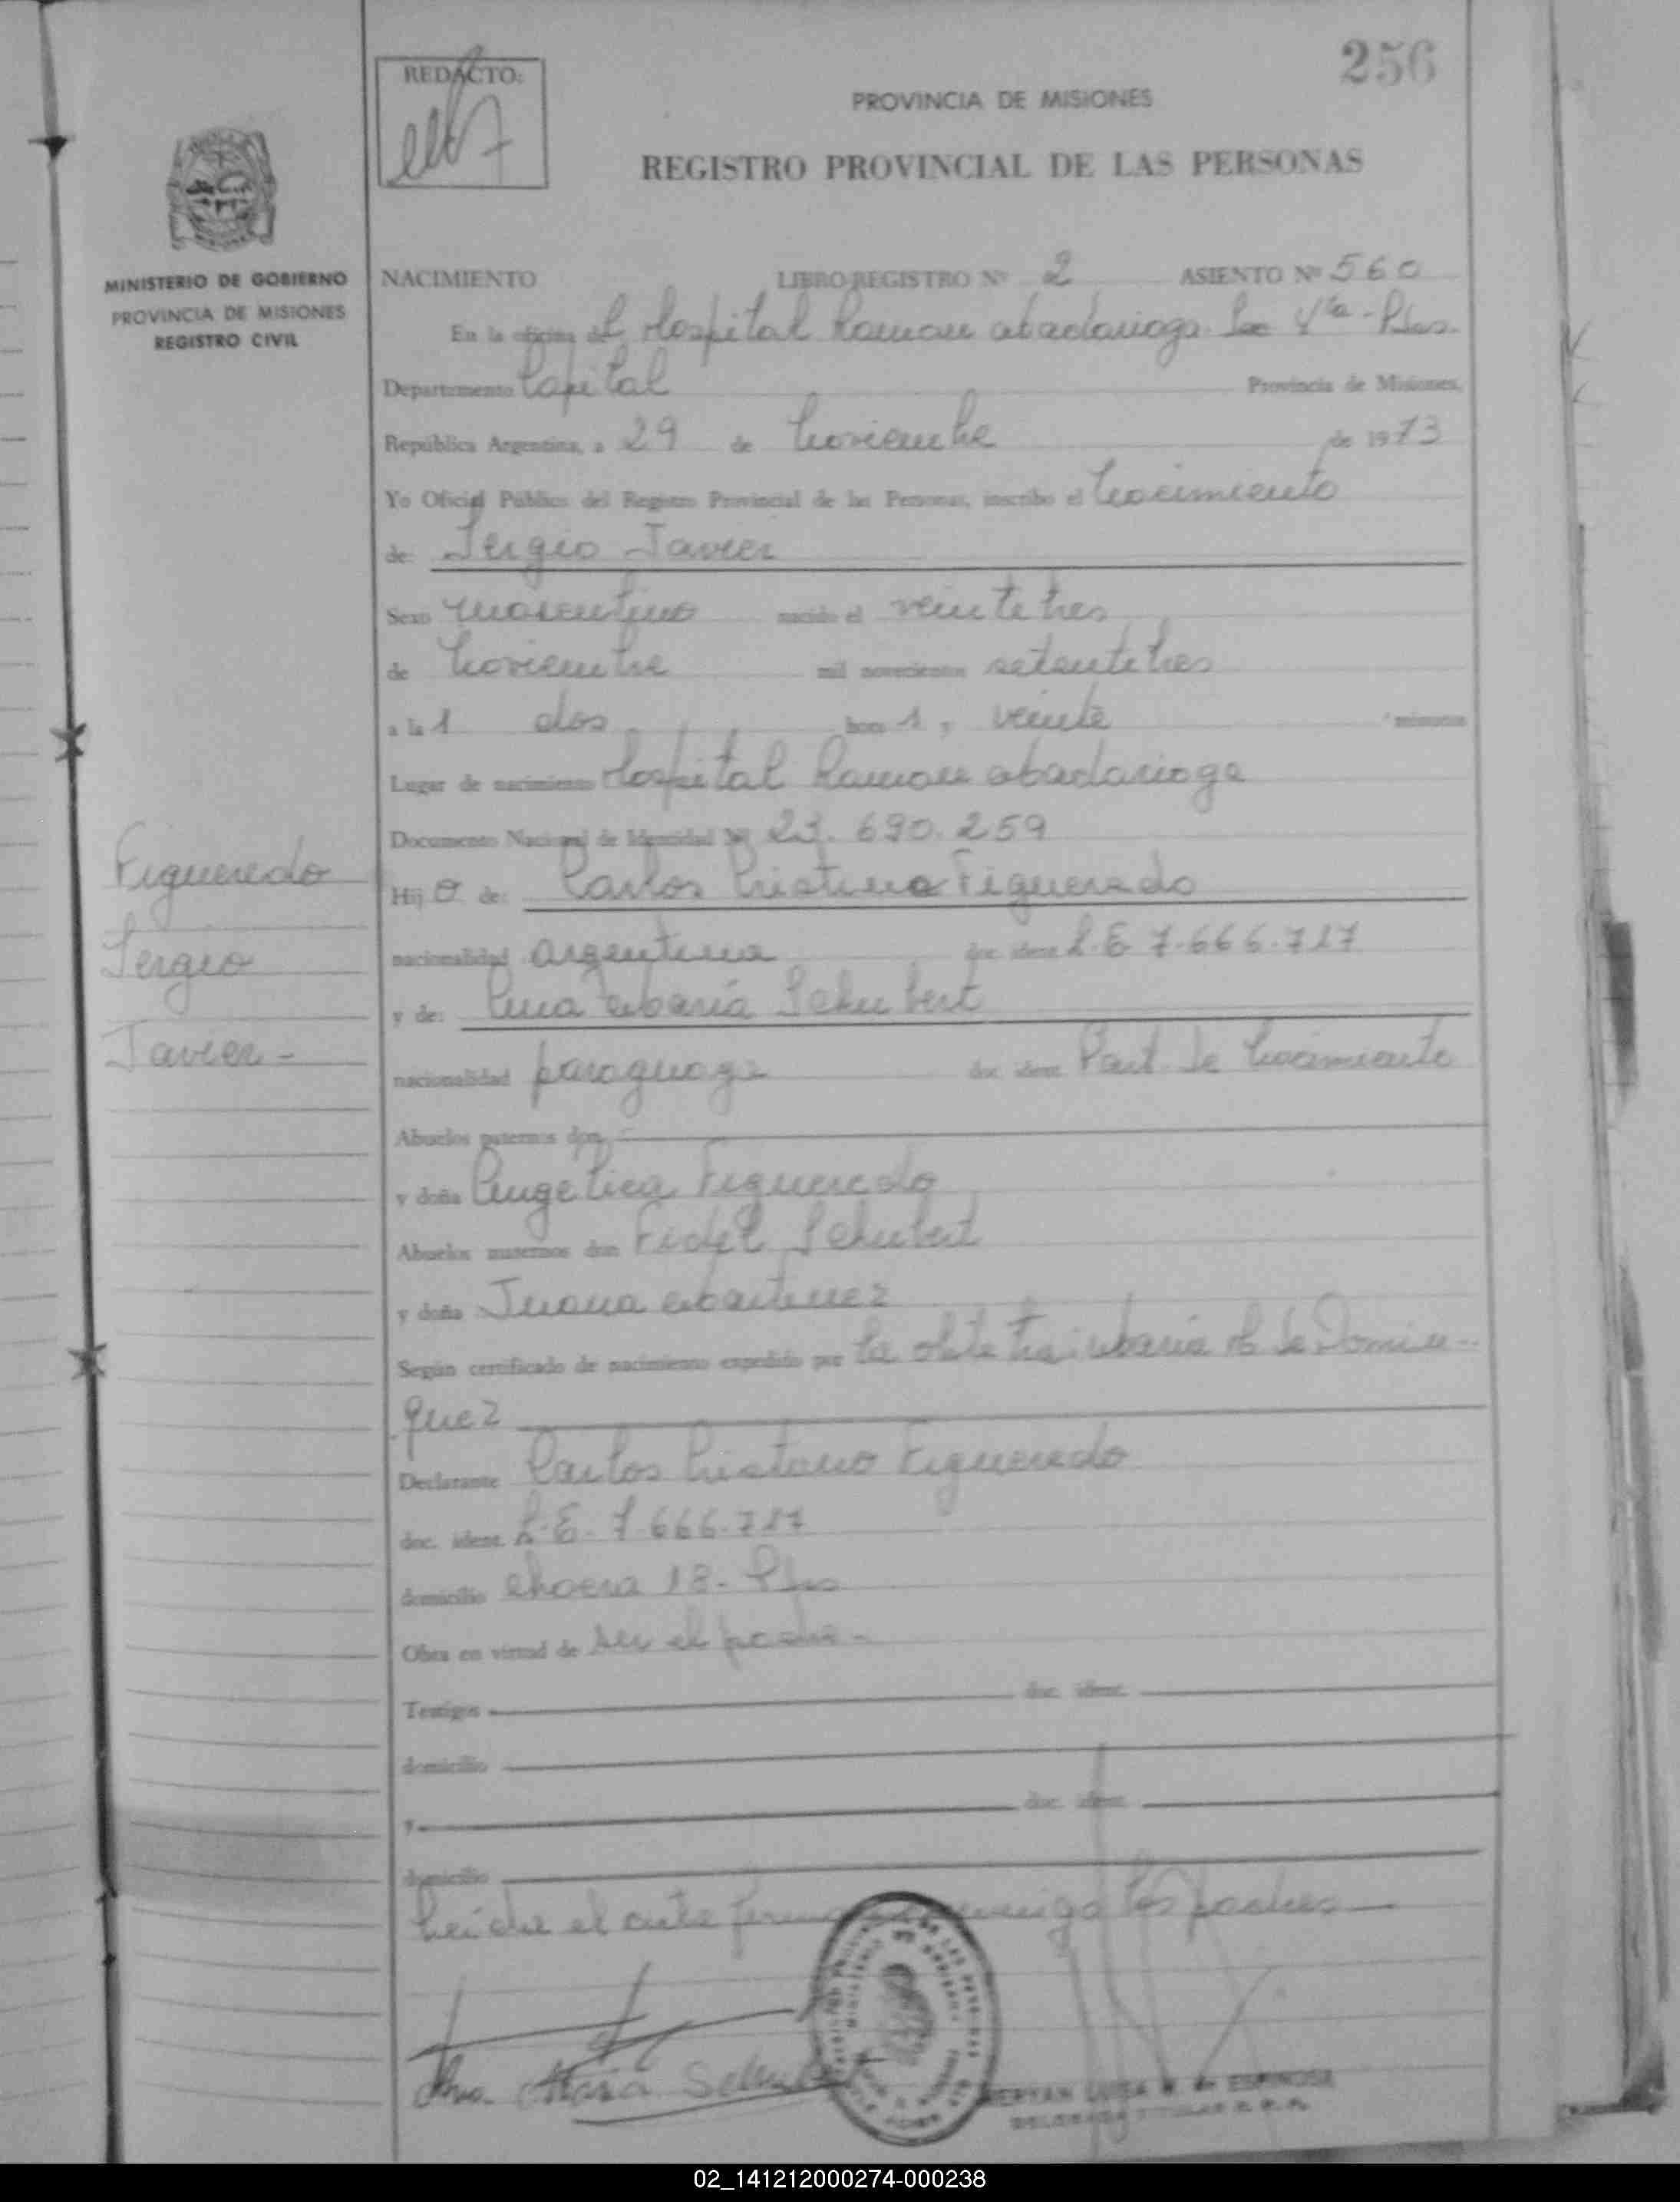 256
REDACTO:
PROVINCIA DE MISIONES
REGISTRO PROVINCIAL DE LAS PERSONAS
MINISTERIO DE GOBIERNO
PROVINCIA DE MISIONES
REGISTRO CIVIL
NACIMIENTO LIBRO REGISTRO Nº 2 ASIENTO Nº 560
En la oficina del Hospital Ramon Madariaga Pdas.
Departamento Capital Provincia de Misiones,
República Argentina, a 29 de Noviembre de 1973
Yo Oficial Público del Registro Provincial de las Personas, inscribo el Nacimiento
de: Sergio Javier
Sexo masculino nacido el veintetres
de Noviembre mil novecientos setentetres
a la 1 dos hora 1 y veinte minutos
Lugar de nacimiento Hospital Ramon Madariaga
Documento Nacional de Identidad Nº 23.690.259
Hij o de: Carlos Figueredo
nacionalidad argentina doc. ident. L.E 7.666.717
y de: Ana Maria Schubert
nacionalidad paraguaya doc. ident. Part. de Nacimiento
Abuelos paternos don
y doña Angelica Figueredo
Abuelos maternos don Fidel Schubert
y doña Juana Martinez
Según certificado de nacimiento expedido por la obstetra: Maria de Domin-
guez
Declarante Carlos Figueredo
doc. ident. L.E. 7.666.717
domicilio 13 - Pdas
Obra en virtud de ser el padre -
Testigos doc. ident.
domicilio
y doc. ident.
domicilio
Leída el acta firman conmigo los padres
Ana Maria Schubert
Figueredo
Sergio
Javier -
02_141212000274-000238